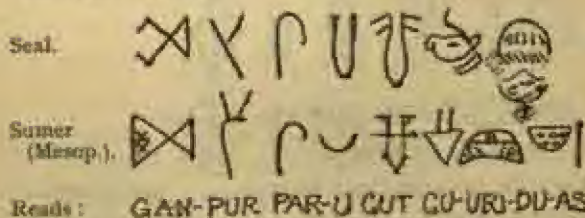 Seal.
Sumer
(Mesop.).
Reads: GAN-PUR PAR-U GUT GU-URI-DU-AS